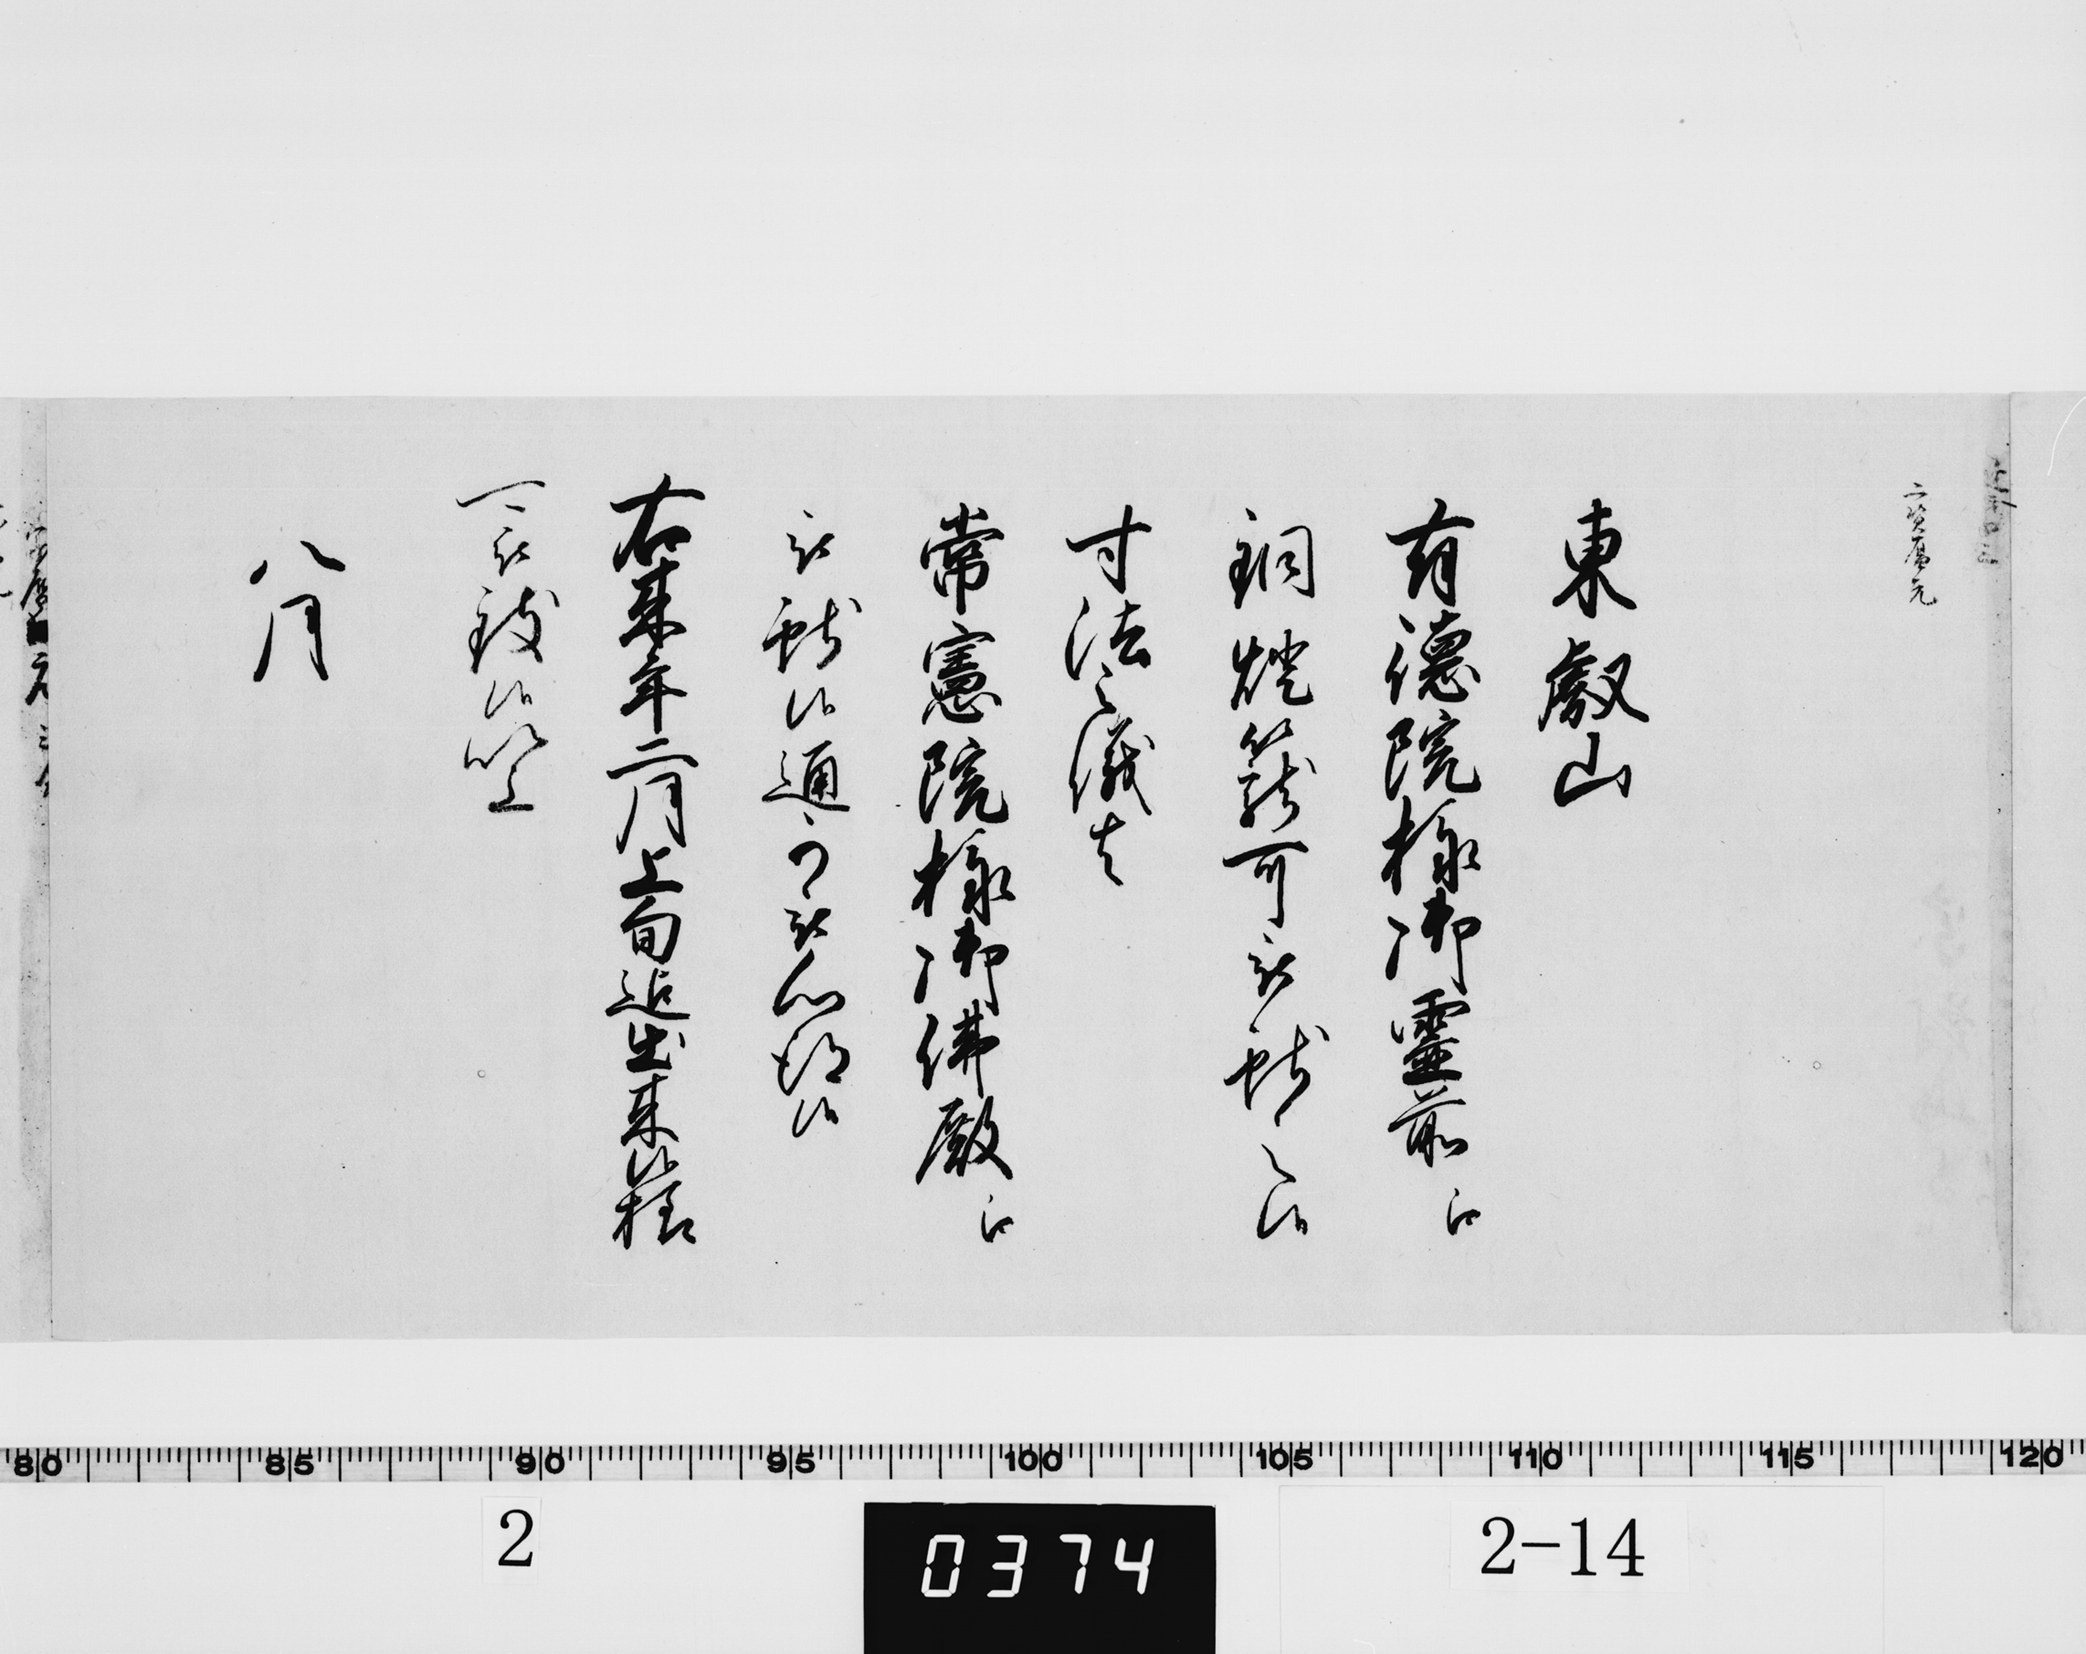 宝暦元
東叡山
有徳院様御霊前江
銅燈籠可被献之候
寸法之儀者
常憲院様御佛殿江
被献候通可被心得候
右来年二月上旬迄出来候様
可被致候以上
八月
80 85 90 95 100 105 110 115 120
2
0374
2-14